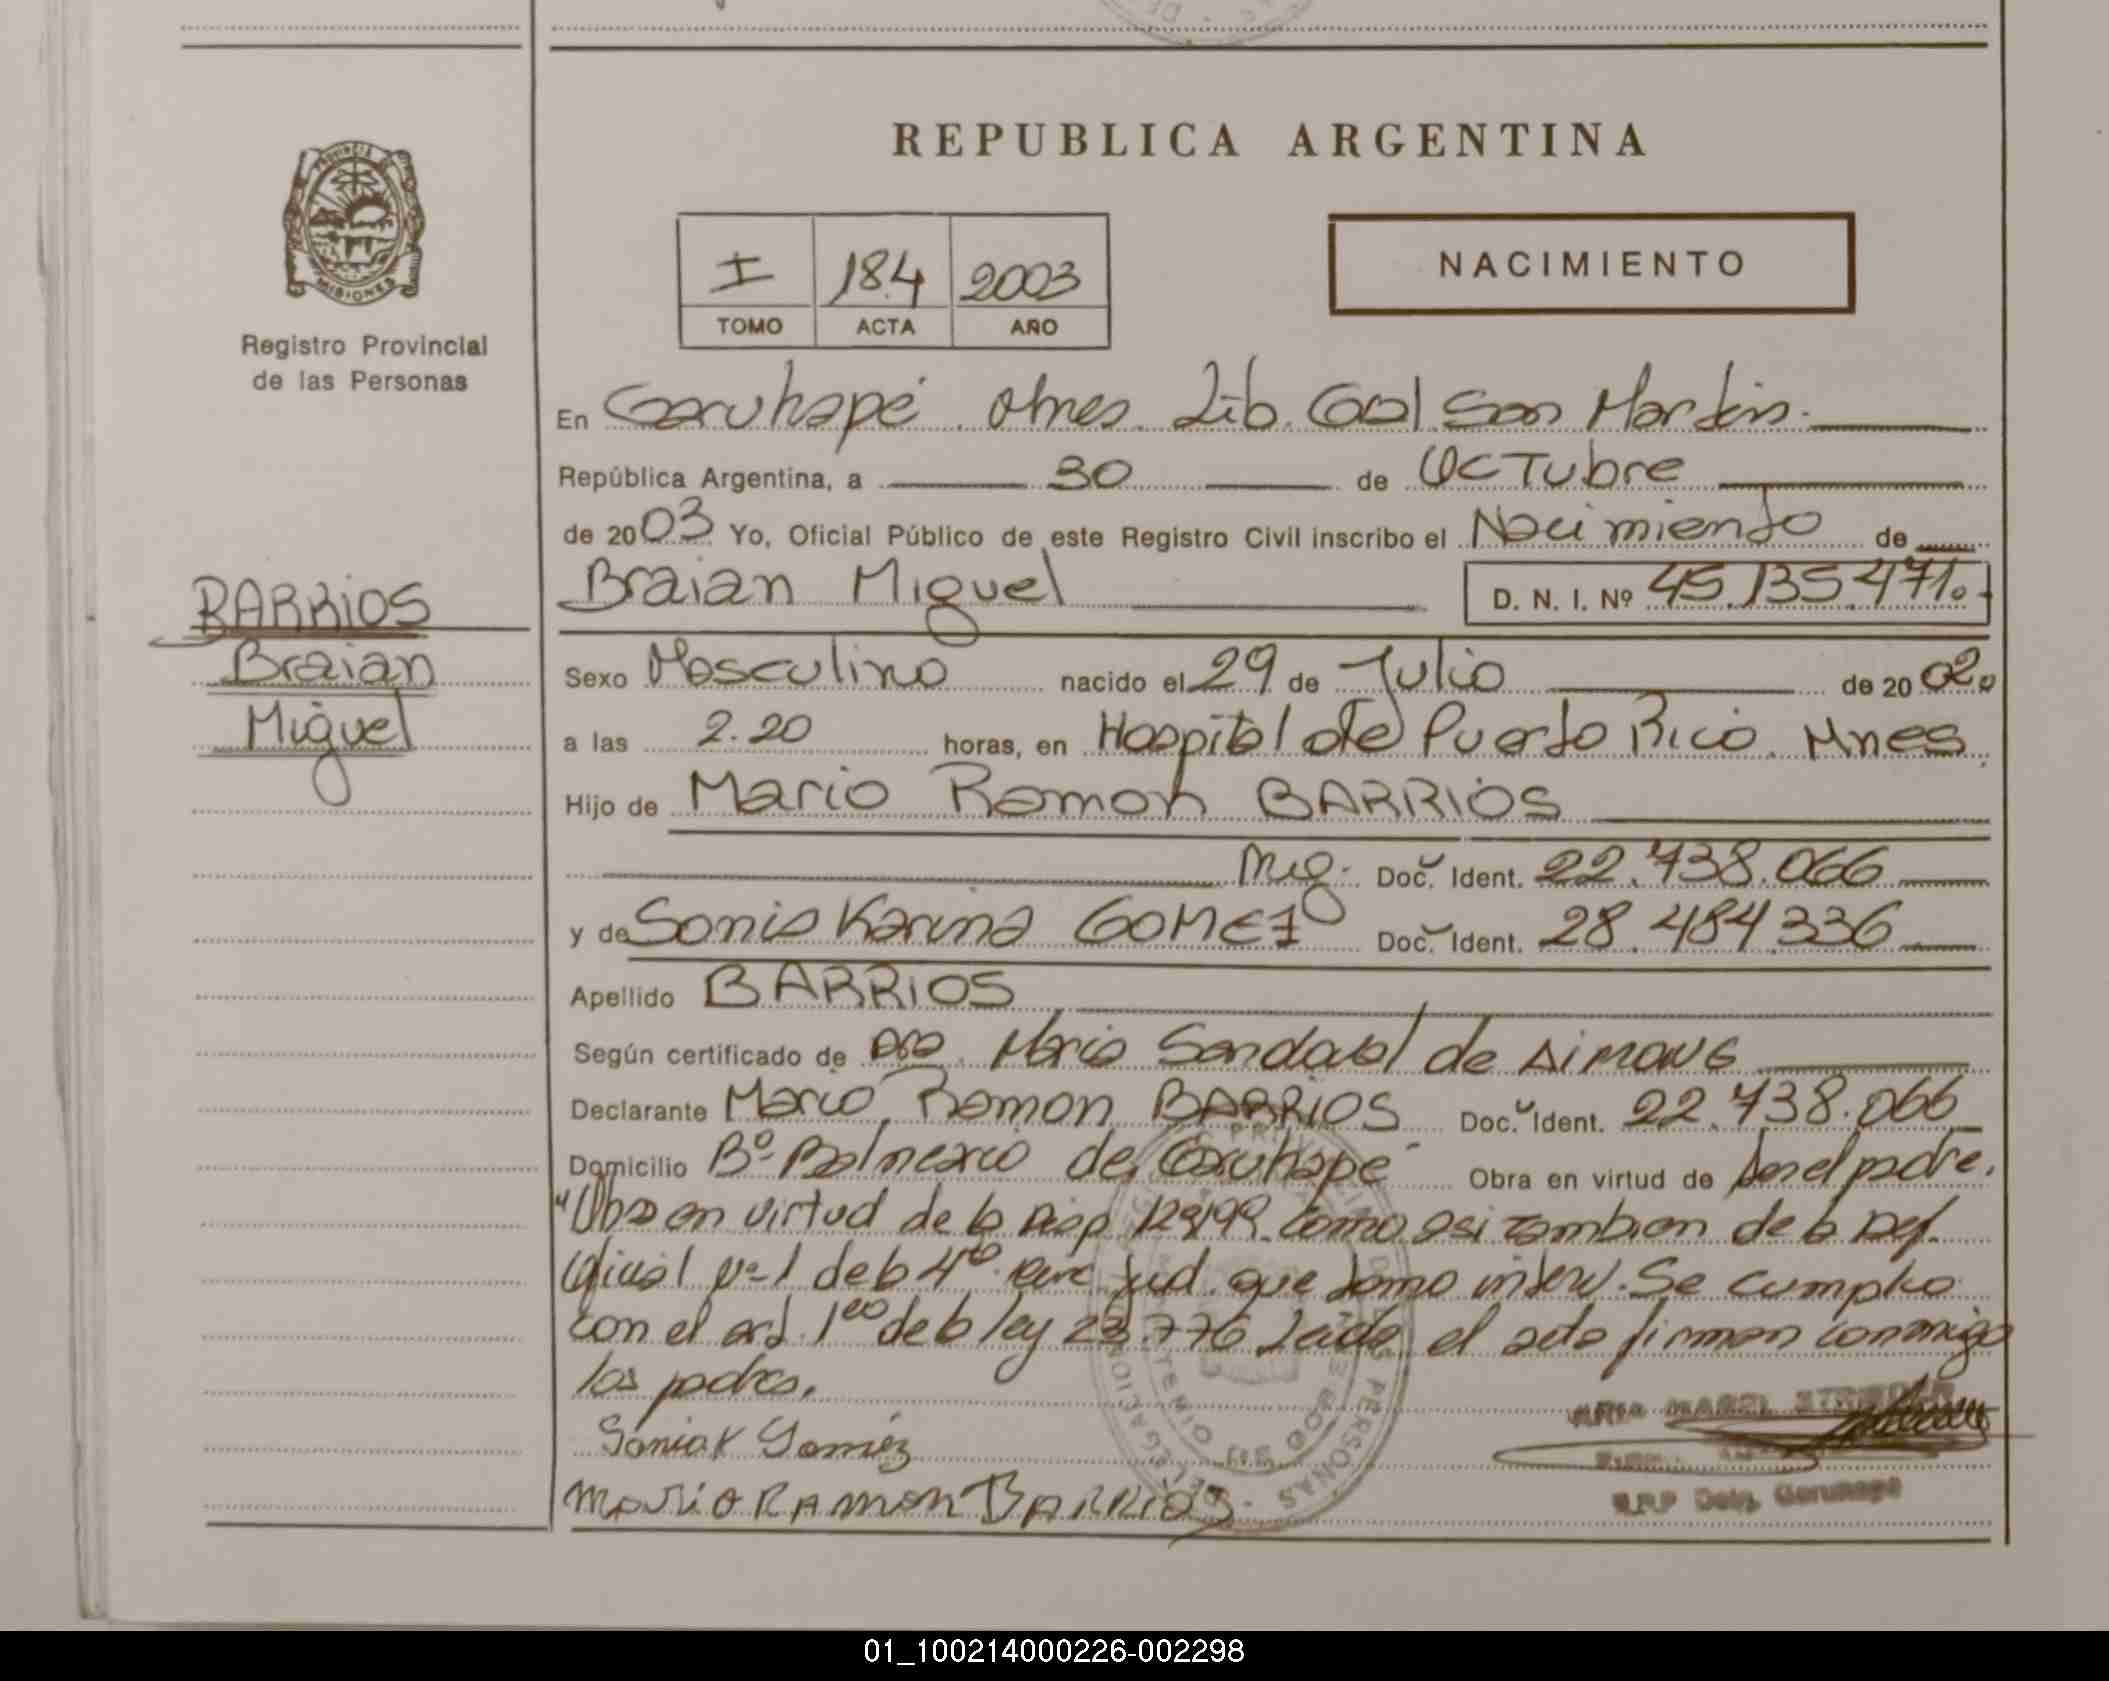 REPUBLICA ARGENTINA
PROVINCIA DE MISIONES
Registro Provincial
de las Personas
I 184 2003
TOMO ACTA AÑO
NACIMIENTO
En Garuhapé. Mnes. Lib. Gral San Martin.
República Argentina, a 30 de OCTubre
de 2003 Yo, Oficial Público de este Registro Civil inscribo el Nacimiento de
Braian Miguel D. N. I. Nº 45.135.471.-
BARRIOS
Braian
Miguel
Sexo Masculino nacido el 29 de Julio de 2002.
a las 2.20 horas, en Hospital de Puerto Rico. Mnes
Hijo de Mario Ramon BARRIOS
Doc. Ident. 22.738.066
y de Sonia Karina GOMEZ Doc. Ident. 28.484.336
Apellido BARRIOS
Según certificado de Dra. Maria Sandoval de
Declarante Mario Ramon BARRIOS Doc. Ident. 22.738.066
Domicilio Bº Balneario de Garuhape Obra en virtud de ser el padre.
"Obra en virtud de la Disp 129/99. como asi tambien de la Def.
Oficial Nº 1 de la 4º Circ Jud. que tomo interv. Se cumplio
con el art. 1ero de la ley 23.776 Leida el acta firman conmigo
los padres.
Sonia K Gomez
MARIO RAMON BARRIOS
R.P.P Deleg. Garuhape
01_100214000226-002298